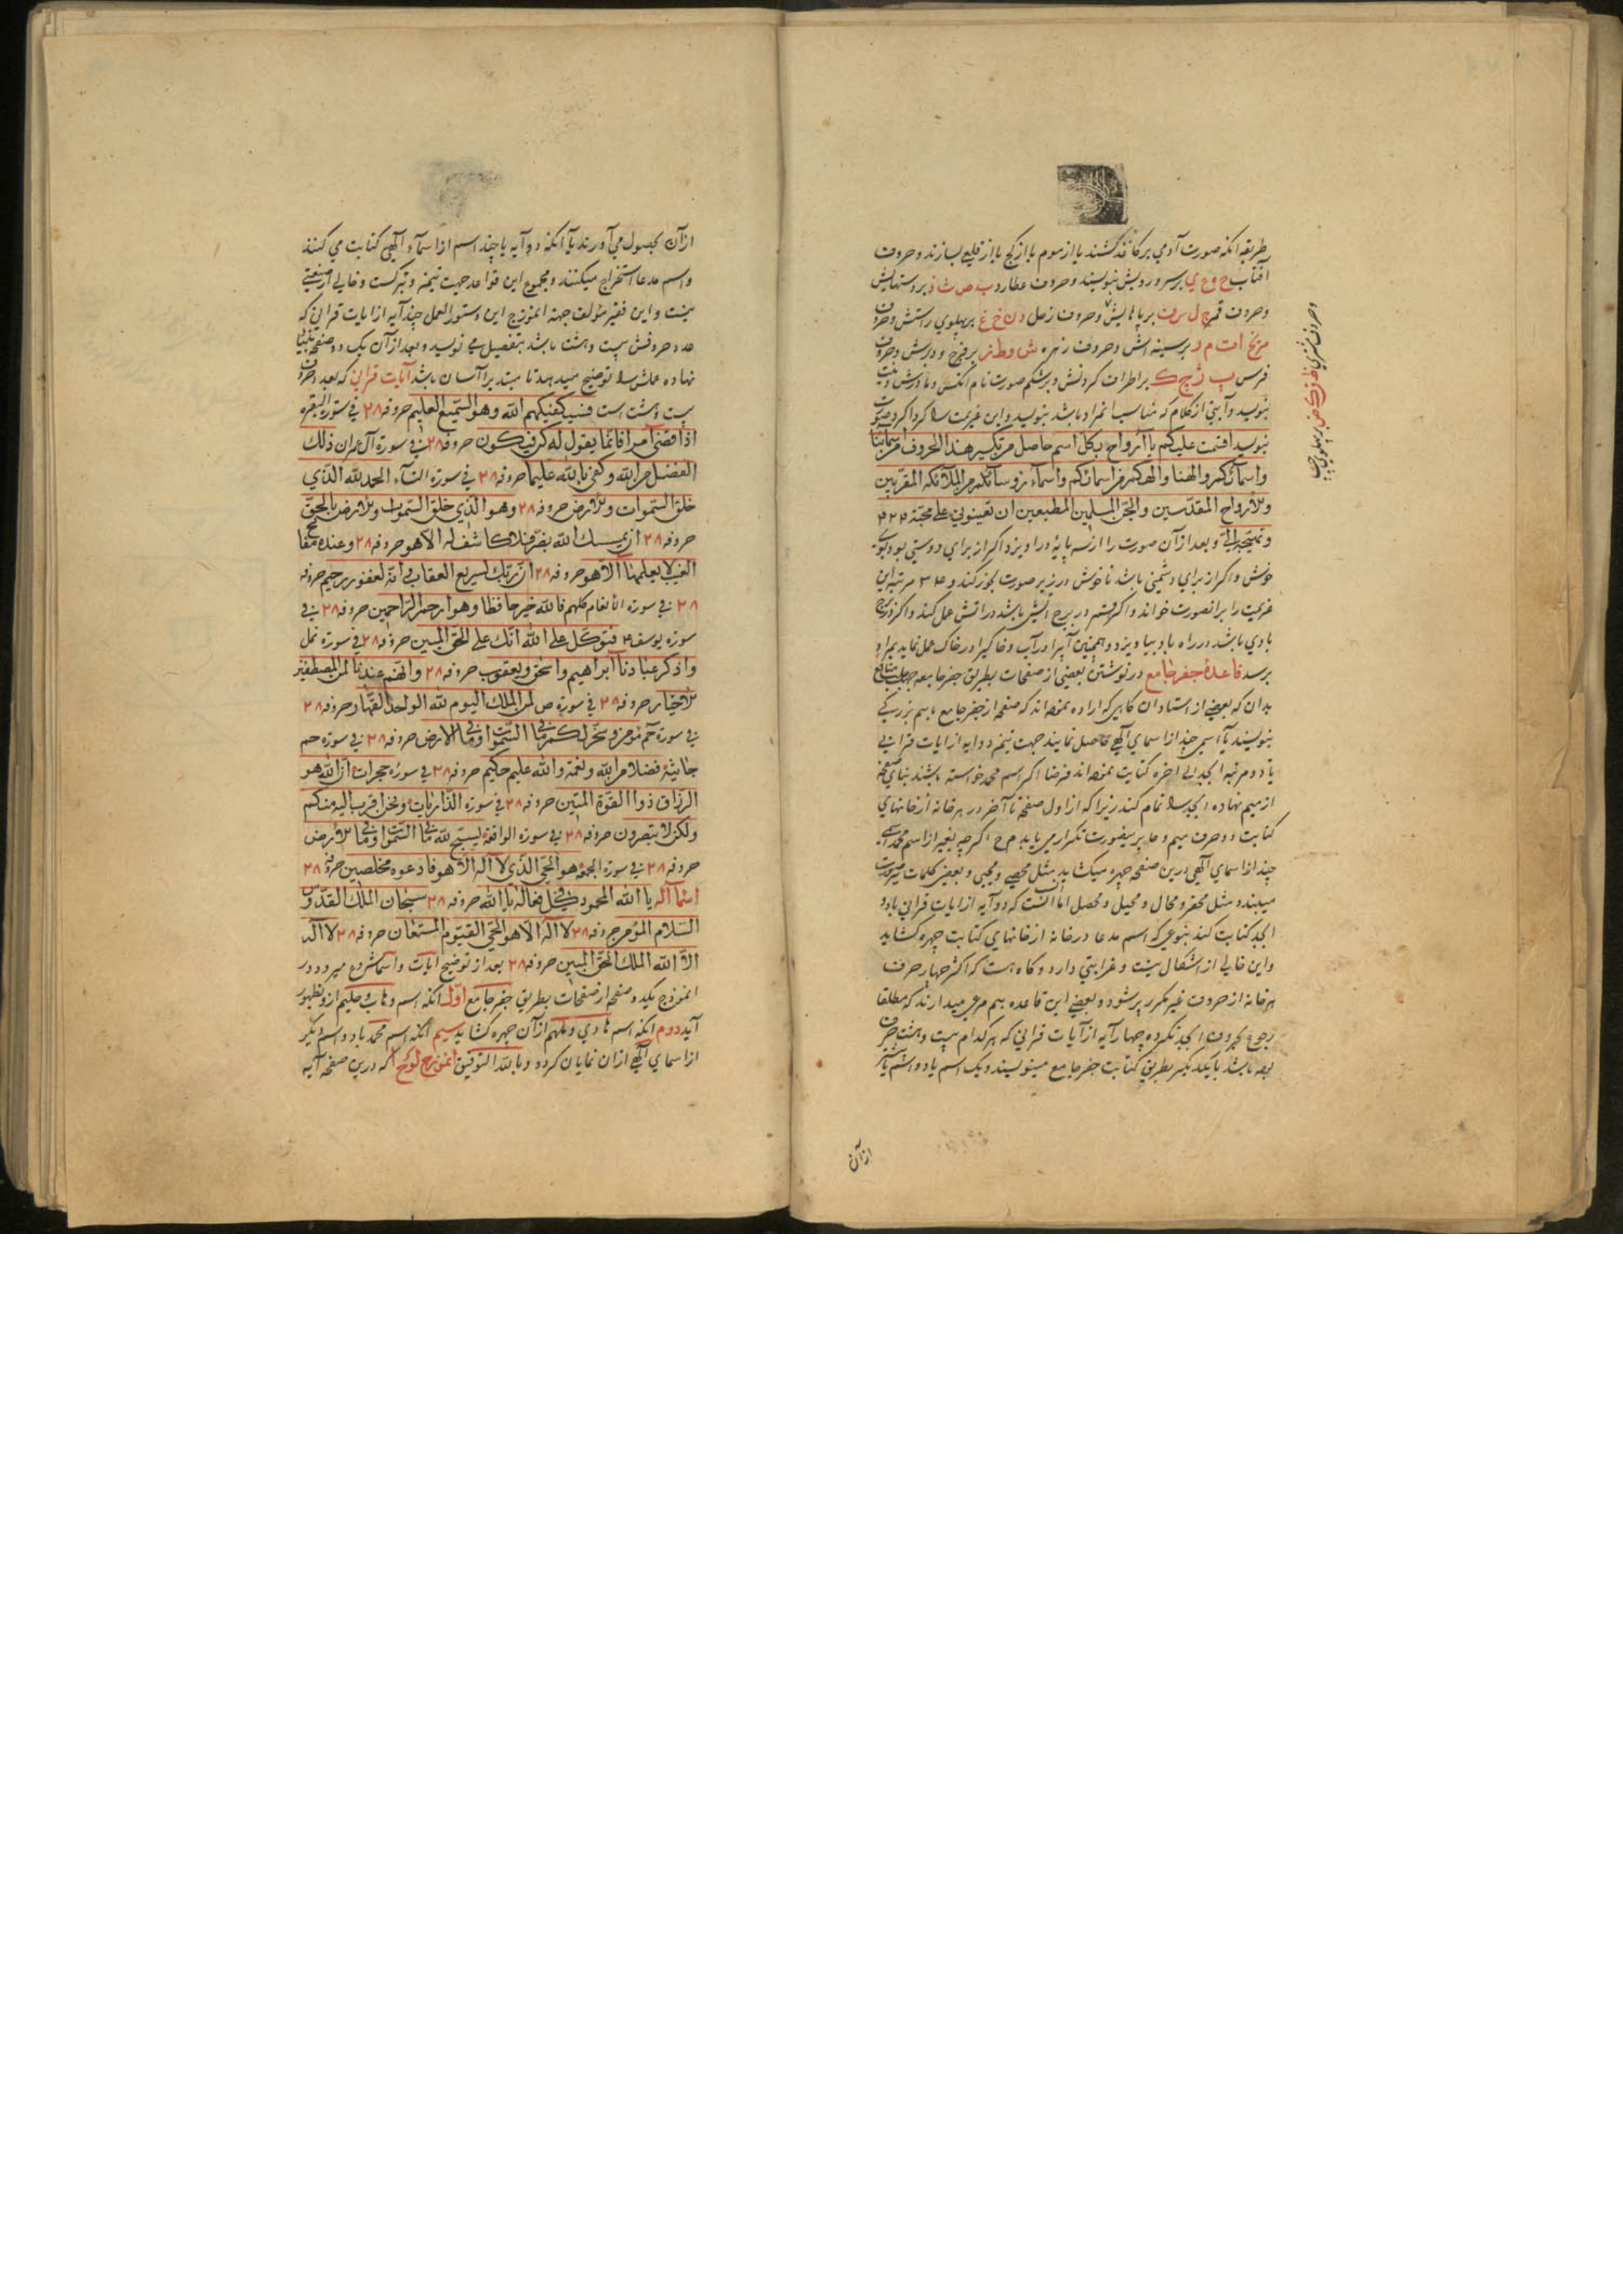 طریقه انکه صورت آدمی بر کاغذ کشند یا از موم یا از کج یا از قلعی بسازند و حروف
افتاب ح و ع ی بر سر و رویش بنویسند و حروف عطارد ب ص ث ذ بر دستهایش
و حروف قمر ل س ف بر پاهایش و حروف زحل د ن خ غ بر پهلوی راستش و حروف
مریخ ا ت م بر سینه اش و حروف زهره ش و ط بر فرج و دبرش و حروف
بر اطراف کردنش و بر شکم صورت نام انکس و مادرش
بنویسد و آیتی از کلام که مناسب انمراد باشد بنویسد و این عزیمت را کرداکرد صورت
بنویسد اقسمت علیکم یا ارواح بکل اسم حاصل من تکسیر هذا الحروف
واسمائکم والهنا والهکم من اسمائکم واسماء رؤسائکم من الملائکه المقربین
والارواح المقدسین والجن المسلمین المطیعین ان تعینونی علی محبة
و بعد از آن صورت را از سه پایه در اویزد اکر از برای دوستی بود ببوی
خوش و اکر از برای دشمنی باشد ناخوش در زیر صورت بخور کند و مرتبه این
عزیمت را بر انصورت خواند و اکر قمر در برج آتشی باشد در اتش عمل کند و اکر در برج
بادی باشد در راه باد بیاویزد و همچنین آبی را در آب و خاکی را در خاک عمل نماید بمراد
برسد قاعدهٔ جفر جامع در نوشتن بعضی از صفحات بطریق جفر جامعه
بدان که بعضی از استادان کاهی که اراده نموده اند که صفحه از جفر جامع باسم بزرکی
بنویسند یا اسمی چند از اسمای الهی حاصل نمایند جهت تیمن دو ایه از ایات قرانی
یا دو مرتبه ابجد الی اخره کتابت نموده اند فرضا اکر اسم محمد خواسته باشند بنای صفحه
از میم نهاده ابجد را تمام کنند زیرا که از اول صفحه تا آخر در هر خانه از خانهای
کتابت دو حرف میم و حا بدینصورت تکرار می یابد م ح اکر چه بغیر از اسم محمد
چند از اسمای الهی درین صفحه چهره میکشاید مثل محصی و محیی و بعضی کلمات
میبندد مثل محقر و محال و محیل و محصل اما انست که دو آیه از ایات قرانی یا دو
ابجد کتابت کنند بنوعی که اسم مدعا در خانه از خانهای کتابت چهره کشاید
و این خالی از اشکال نیست و غرابتی دارد و کاه هست که اکثر چهار حرف
هر خانه از حروف غیر مکرر پر شود و بعضی این قاعده هم مرعی میدارند که مطلقا
رجوع بحروف ابجد نکرده چهار آیه از آیات قرانی که هر کدام بیست و هشت حرف
بوده باشد با یکدیکر بطریق کتابت جفر جامع مینویسند و یک اسم یا دو اسم یا
از آن
و حروف مشتری بر پهلوی چپ
از آن بحصول می آورند یا آنکه دو آیه یا چند اسم از اسماء الهی کتابت می کنند
و اسم مدعا استخراج میکنند و مجموع این قواعد جهت تیمن و تبرکست و خالی از صنعتی
نیست و این فقیر مؤلف جهة انموزج این دستور العمل چند آیه از ایات قرانی که
عدد حروفش بیست و هشت باشد بتفصیل می نویسد و بعد از آن یک دو صفحه
نهاده عملش را توضیح میدهد تا مبتدی را آسان باشد آیات قرانی که بعدد حروف
بیست و هشت است فسیکفیکهم الله وهو السمیع العلیم حروفه ۲۸ فی سورة البقره
اذا قضی امرا فانما یقول له کن فیکون حروفه ۲۸ فی سورة آل عمران ذلک
الفضل من الله وکفی بالله علیما حروفه ۲۸ فی سورة النساء الحمد لله الذی
خلق السموات والارض حروفه ۲۸ وهو الذی خلق السموات والارض بالحق
حروفه ۲۸ ان یمسسک الله بضر فلا کاشف له الا هو حروفه ۲۸ وعنده مفاتح
الغیب لا یعلمها الا هو حروفه ۲۸ ان ربک لسریع العقاب وانه لغفور رحیم حروفه
۲۸ فی سورة الانعام کلهم فالله خیر حافظا وهو ارحم الراحمین حروفه ۲۸ فی
سوره یوسف فتوکل علی الله انک علی الحق المبین حروفه ۲۸ فی سورة نمل
واذکر عبادنا ابراهیم واسحق ویعقوب حروفه ۲۸ وانهم عندنا لمن المصطفین
الاخیار حروفه ۲۸ فی سورة ص لمن الملک الیوم لله الواحد القهار حروفه ۲۸
فی سورة حم مؤمن و سخر لکم ما فی السموات وما فی الارض حروفه ۲۸ فی سورة حم
جاثیة فضلا من الله ونعمة والله علیم حکیم حروفه ۲۸ فی سورة حجرات ان الله هو
الرزاق ذوا القوة المتین حروفه ۲۸ فی سورة الذاریات ونحن اقرب الیه منکم
ولکن لا تبصرون حروفه ۲۸ فی سوره الواقعة یسبح لله ما فی السموات وما فی الارض
حروفه ۲۸ فی سورة الجمعه هو الحی الذی لا اله الا هو فادعوه مخلصین حروفه ۲۸
اسماء اله یا الله المحمود فی کل فعاله یا الله حروفه ۲۸ سبحان الملک القدوس
السلام المؤمن حروفه ۲۸ لا اله الا هو الحی القیوم المستعان حروفه ۲۸ لا اله
الا الله الملک الحق المبین حروفه ۲۸ بعد از توضیح ایات و اسما شروع میرود در
انموزج یکد و صفحه از صفحات بطریق جفر جامع اول آنکه اسم وهاب و حلیم ازو بظهور
آید دوم آنکه اسم هادی و ملهم از آن چهره کشاید سیم آنکه اسم محمد یا دو اسم دیکر
از اسمای الهی از ان نمایان کردد و بالله التوفیق انموزج لوح ا که درین صفحه آیه